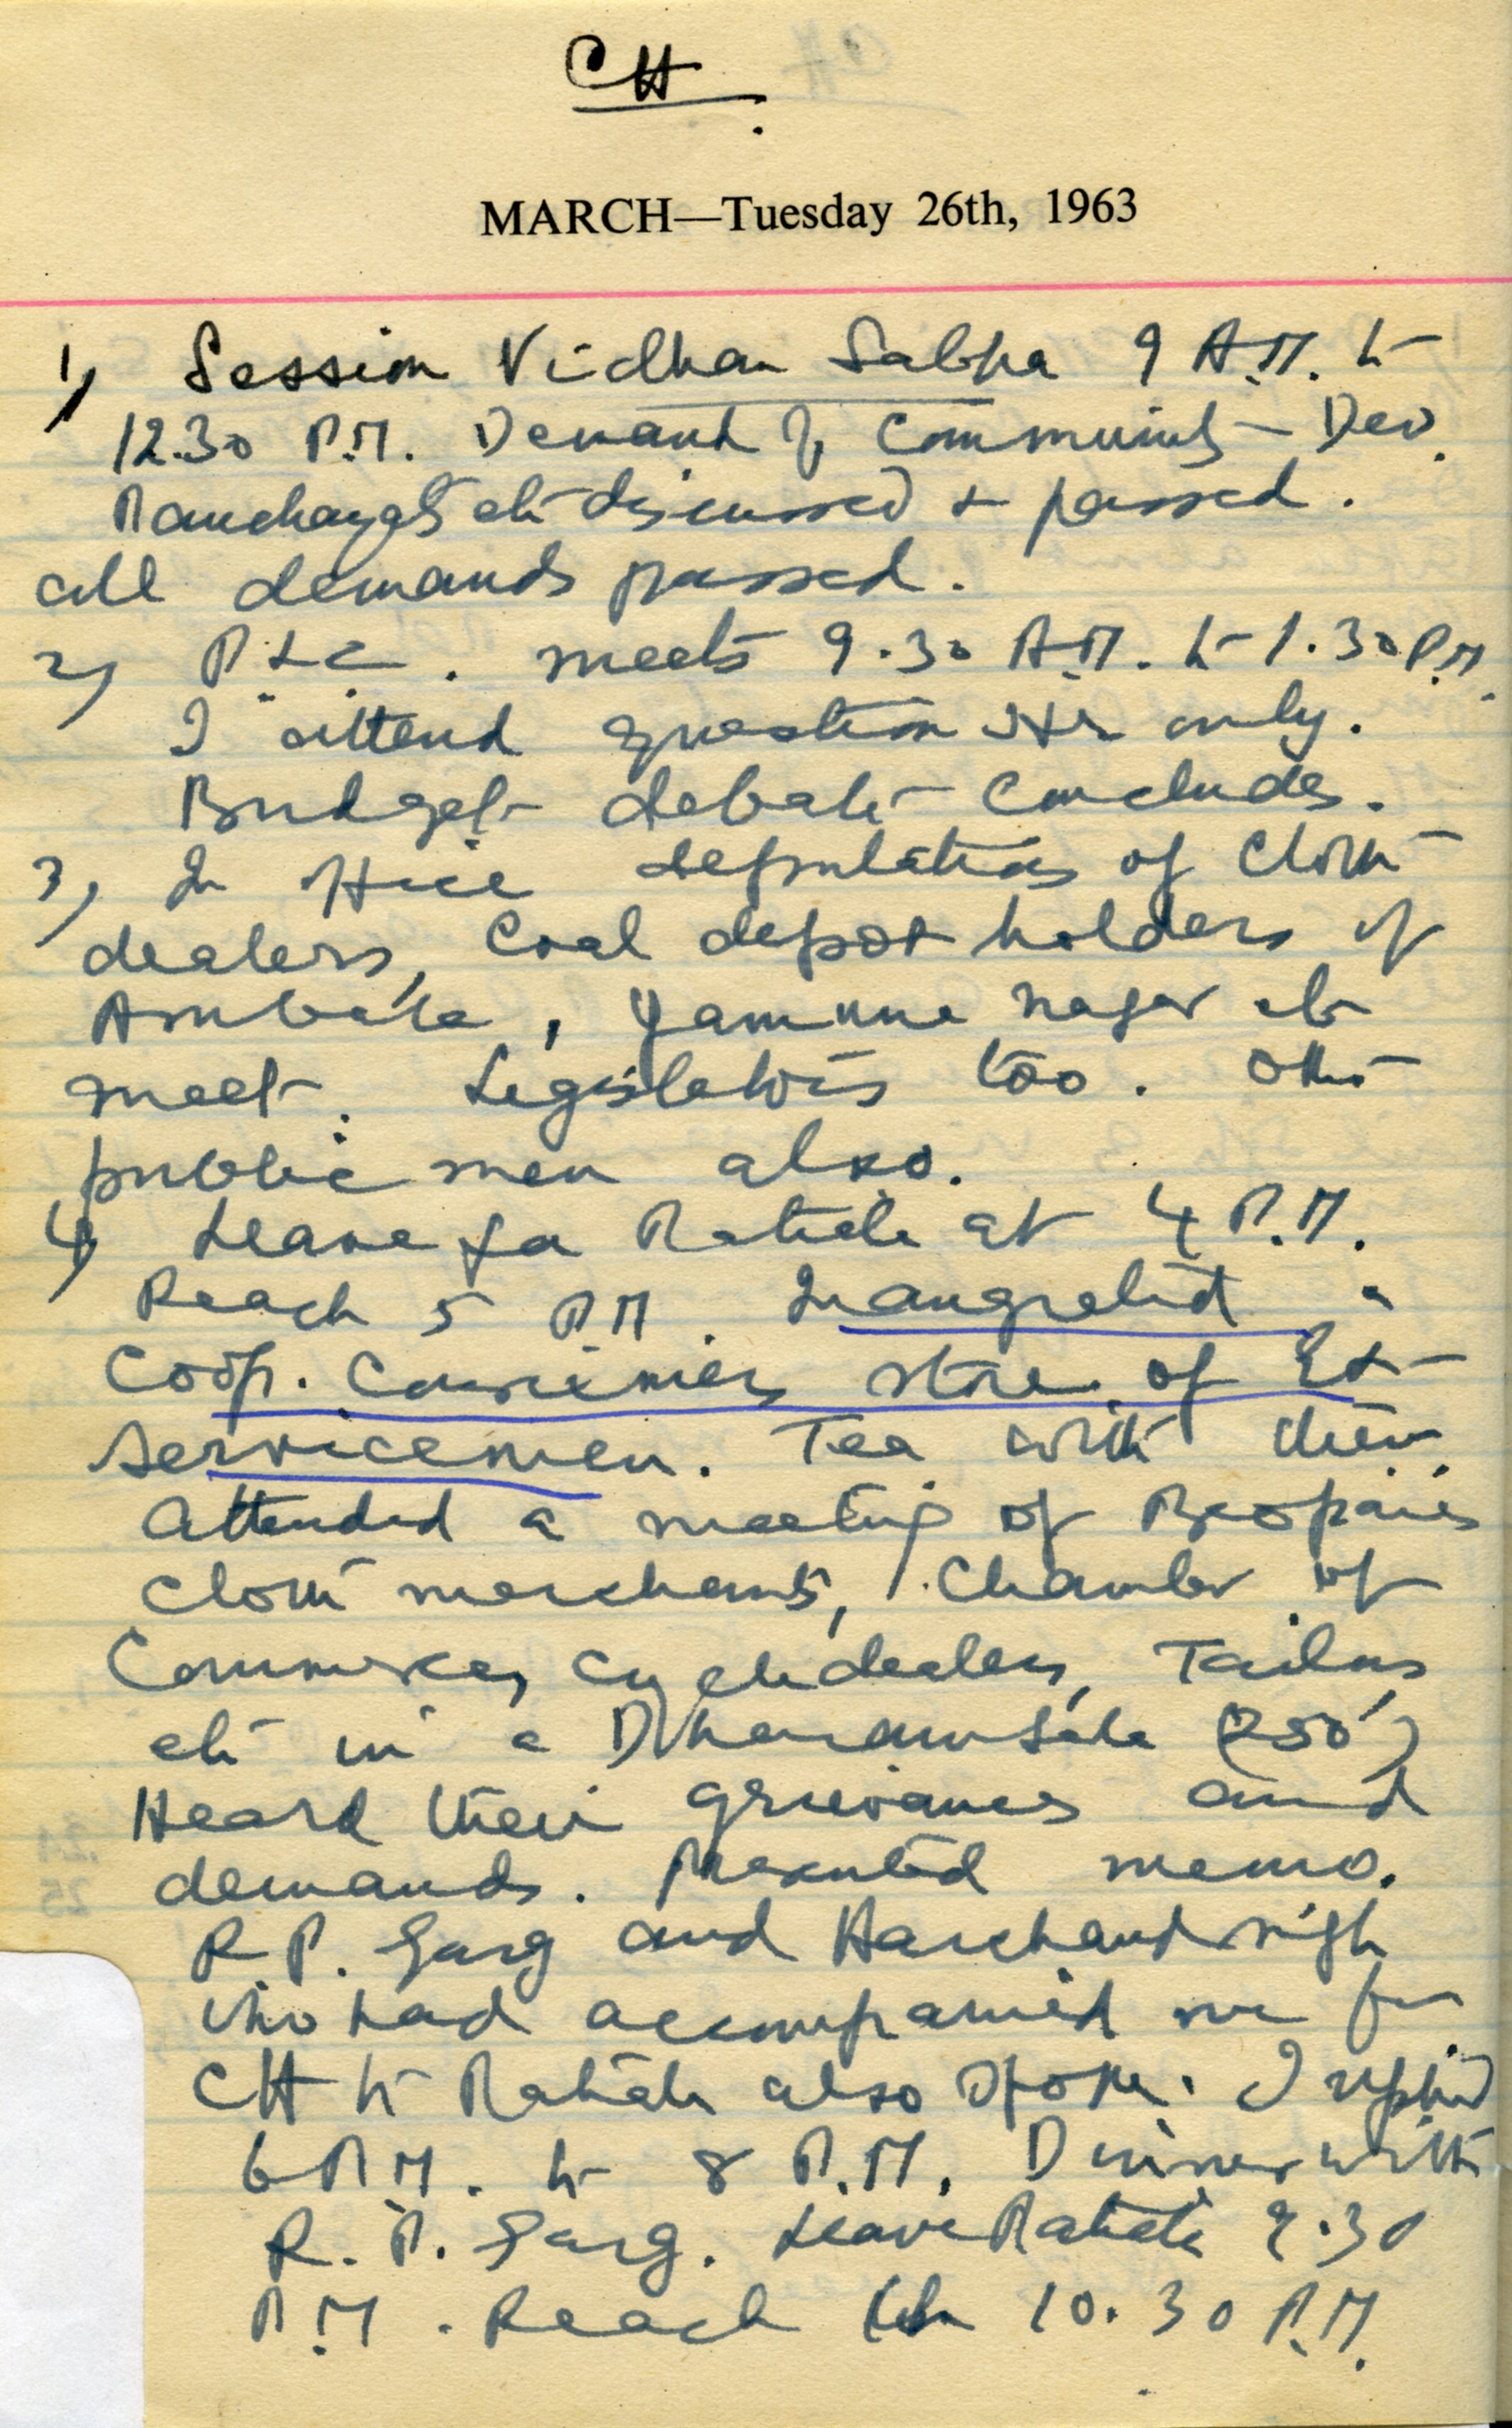 CH
MARCH—Tuesday 26th, 1963
1) Session Vidhan Sabha 9 A.M. to
12.30 P.M. Demand of Community Dev.
Panchayats etc discussed & passed.
all demands passed.
2) meets 9.30 A.M. to 1.30 P.M.
I attend question Hr only.
Budget debate concludes.
3) In office deputations of Cloth
dealers, Coal depot holders of
Ambala, Yamuna Nagar etc
meet. Legislators too. Other
public men also.
4) Leave for Patiala at 4 P.M.
Reach 5 P.M. Inaugrated a
Coop. Consumers store of Ex-
servicemen. Tea with them.
Attended a meeting of Beoparies
Cloth merchants, Chamber of
Commerce, Cycle dealers, Tailors
etc in a Dharamsala (250)
Heard their grievances and
demands. Presented memo.
R.P. Garg and Harchand Singh
who had accompanied me from
CH to Patiala also spoke. I replied
6 P.M. to 8 P.M. Dinner with
R.P. Garg. Leave Patiala 9.30
P.M. Reach CH 10.30 P.M.